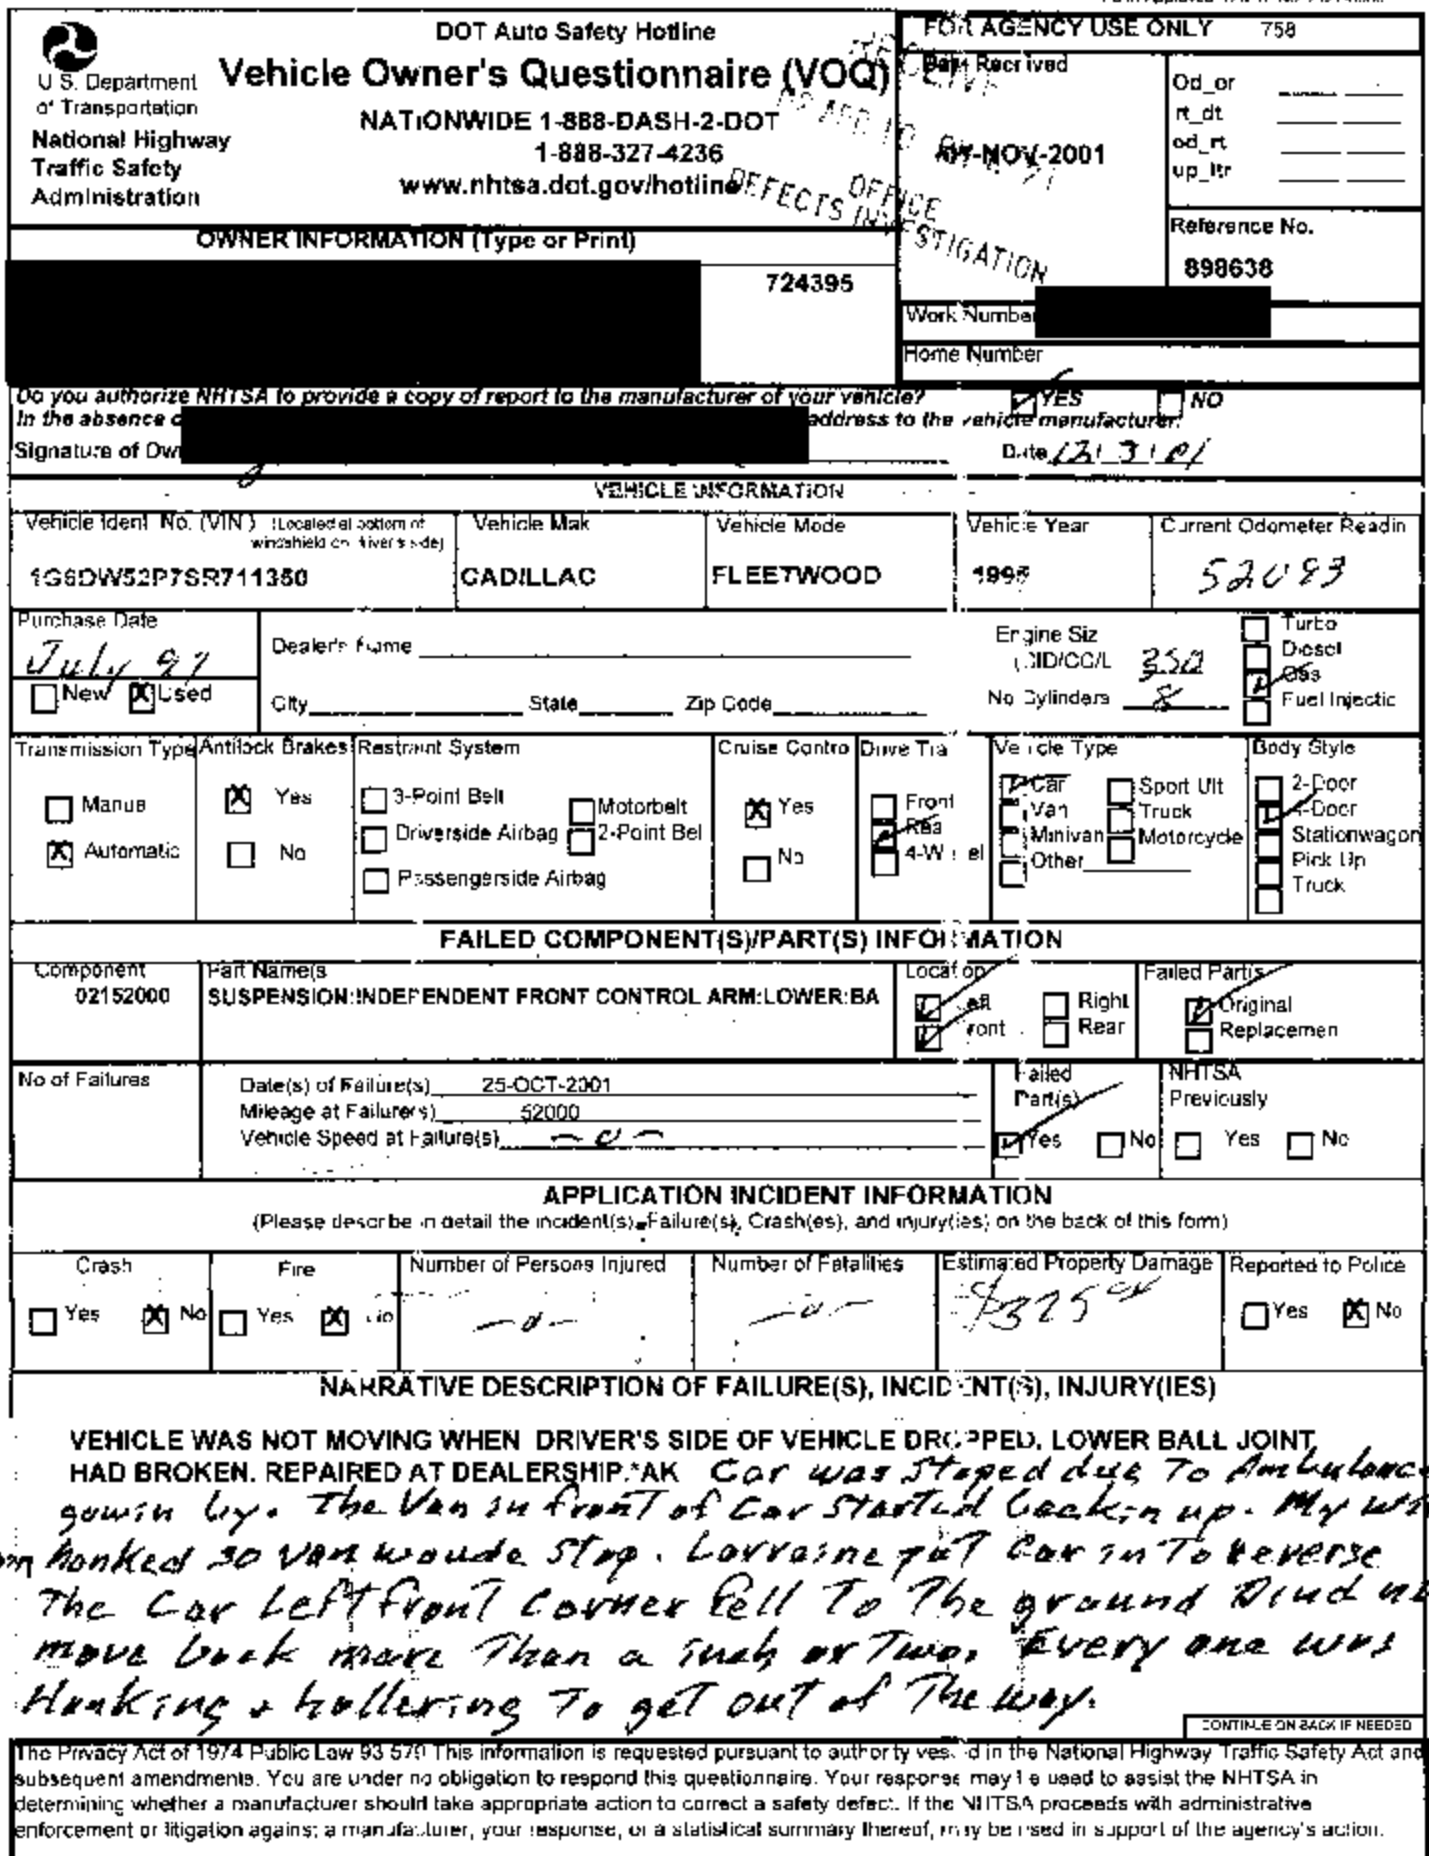 DOT Auto Safety Hotline
Vehicle Owner's Questionnaire (VOQ)
NATIONWIDE 1-888-DASH-2-DOT
1-888-327-4236
www.nhtsa.dot.gov/hotline
U S. Department
of Transportation
National Highway
Traffic Safety
Administration
FOR AGENCY USE ONLY 758
Date Received
NOV-2001
OFFICE
DEFECTS INVESTIGATION
Od_or
rt_dt
od_rt
up_ltr
Reference No.
898638
OWNER INFORMATION (Type or Print)
724395
Work Number
Home Number
Do you authorize NHTSA to provide a copy of report to the manufacturer of your vehicle? YES NO
In the absence address to the vehicle manufacturer.
Signature of Own Date 12/3/01
VEHICLE INFORMATION
Vehicle Ident. No. (VIN) (Located at bottom of
windshield on driver's side)
1G6DW52P7SR711350
Vehicle Mak
CADILLAC
Vehicle Mode
FLEETWOOD
Vehicle Year
1995
Current Odometer Readin
52093
Purchase Date
July 97
New Used
Dealer's Name
City State Zip Code
Engine Siz
CID/CC/L 350
No Cylinders 8
Turbo
Diesel
Gas
Fuel Injectic
Transmission Type
Manua
Automatic
Antilock Brakes
Yes
No
Restraint System
3-Point Belt
Driverside Airbag
Passengerside Airbag
Motorbelt
2-Point Bel
Cruise Contro
Yes
No
Drive Tra
Front
Rea
4-Wheel
Vehicle Type
Car
Van
Minivan
Other
Sport Ult
Truck
Motorcycle
Body Style
2-Door
4-Door
Stationwagon
Pick Up
Truck
FAILED COMPONENT(S)/PART(S) INFORMATION
Component
02152000
Part Name(s
SUSPENSION:INDEPENDENT FRONT CONTROL ARM:LOWER:BA
Location
Left Right
Front Rear
Failed Part(s
Original
Replacemen
No of Failures
Date(s) of Failure(s) 25-OCT-2001
Mileage at Failure(s) 52000
Vehicle Speed at Failure(s) -0-
Failed
Part(s)
Yes No
NHTSA
Previously
Yes No
APPLICATION INCIDENT INFORMATION
(Please describe in detail the incident(s), Failure(s), Crash(es), and injury(ies) on the back of this form)
Crash
Yes No
Fire
Yes No
Number of Persons Injured
-0-
Number of Fatalities
-0-
Estimated Property Damage
$325
Reported to Police
Yes No
NARRATIVE DESCRIPTION OF FAILURE(S), INCIDENT(S), INJURY(IES)
VEHICLE WAS NOT MOVING WHEN DRIVER'S SIDE OF VEHICLE DROPPED, LOWER BALL JOINT
HAD BROKEN. REPAIRED AT DEALERSHIP.*AK Car was Stoped due To Ambulance
gowin by. The Van in front of Car Started backin up. My
honked so Van woude Stop. Lorraine put Car in To Reverse
The Car Left front Corner fell To The ground
move back more Than a inch or Two. Every one was
Honking & hollering To get out of The way.
CONTINUE ON BACK IF NEEDED
The Privacy Act of 1974 Public Law 93 579 This information is requested pursuant to authority vested in the National Highway Traffic Safety Act and
subsequent amendments. You are under no obligation to respond this questionnaire. Your response may be used to assist the NHTSA in
determining whether a manufacturer should take appropriate action to correct a safety defect. If the NHTSA proceeds with administrative
enforcement or litigation against a manufacturer, your response, or a statistical summary thereof, may be used in support of the agency's action.